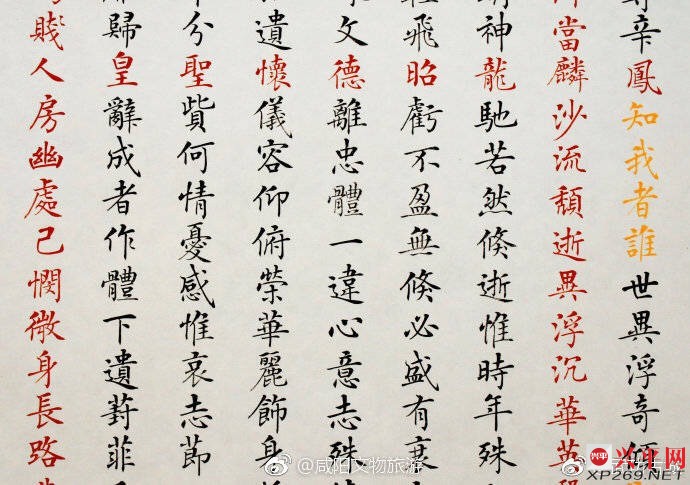 辛鳳知我者誰世異浮奇傾
當麟沙流頹逝異浮沉華英
神龍馳若然倏逝惟時年殊
飛昭虧不盈無倏必盛有衰
文德離忠體一違心意志殊
遺懷儀容仰俯榮華麗飾身
分聖貲何情憂感惟哀志節
歸皇辭成者作體下遺葑菲
賤人房幽處己憫微身長路
@咸阳文物旅游
兴平网
XP269.NET